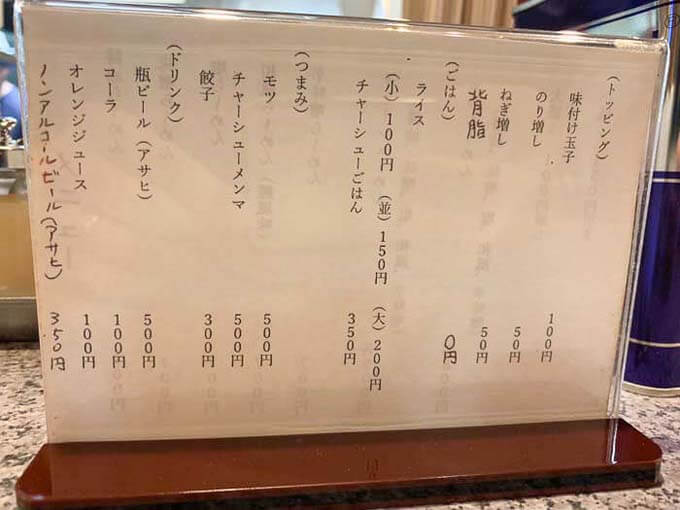 (トッピング)
味付け玉子 100円
のり増し 50円
ねぎ増し 50円
背脂 0円
(ごはん)
ライス
(小)100円 (並)150円 (大)200円
チャーシューごはん 350円
(つまみ)
モツ 500円
チャーシューメンマ 500円
餃子 300円
(ドリンク)
瓶ビール(アサヒ) 500円
コーラ 100円
オレンジジュース 100円
ノンアルコールビール(アサヒ) 350円